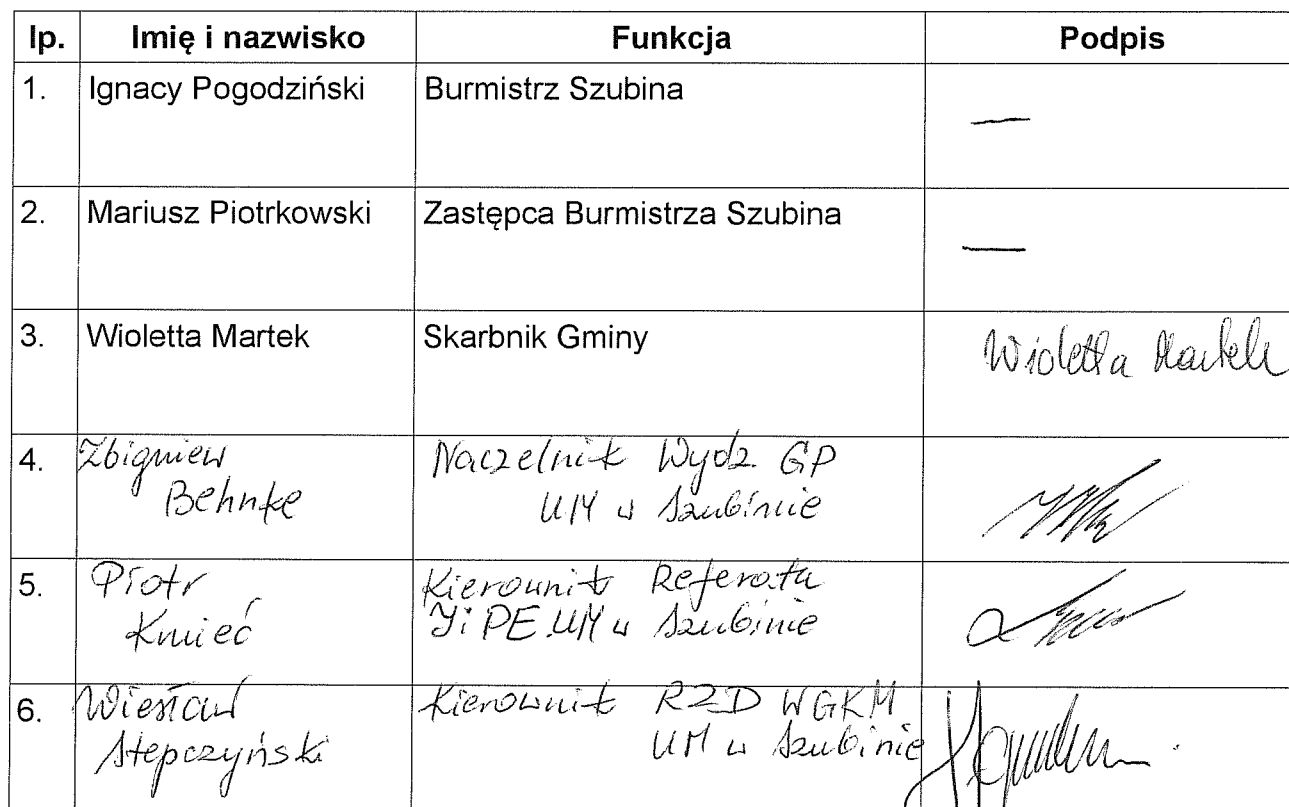 lp. Imię i nazwisko Funkcja Podpis
1. Ignacy Pogodziński Burmistrz Szubina —
2. Mariusz Piotrkowski Zastępca Burmistrza Szubina —
3. Wioletta Martek Skarbnik Gminy Wioletta Martek
4. Zbigniew Naczelnik Wydz GP
Behnke UM w Szubinie
5. Piotr Kierownik Referatu
Kmieć JiPE UM w Szubinie
6. Wiesław Kierownik RZD WGKM
Stepczyński UM w Szubinie